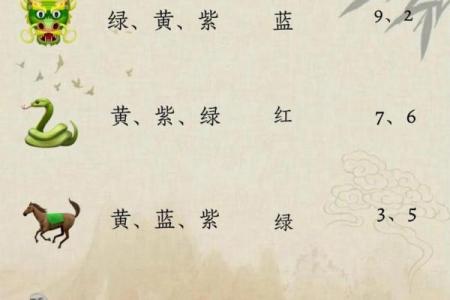 绿、黄、紫 蓝 9、2
黄、紫、绿 红 7、6
黄、蓝、紫 绿 3、5